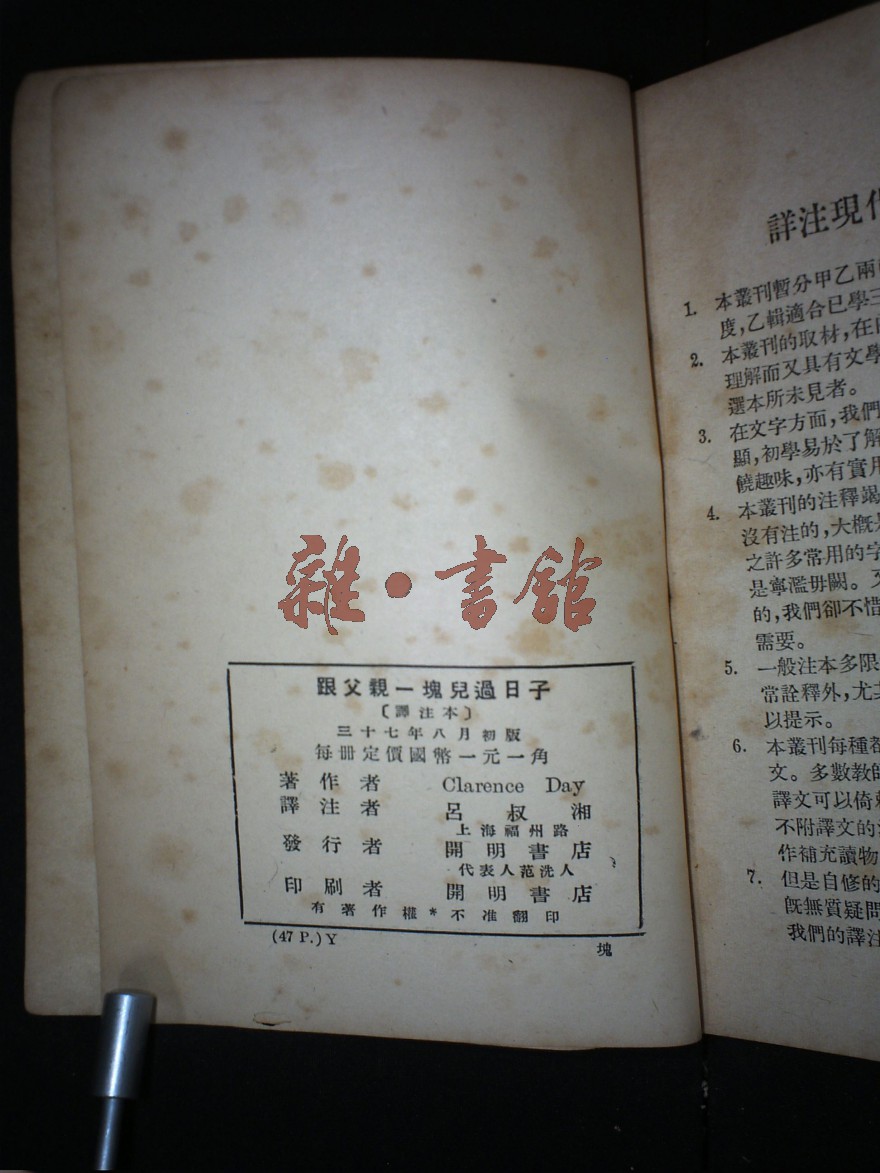 雜·書館
跟父親一塊兒過日子
〔譯注本〕
三十七年八月初版
每冊定價國幣一元一角
著作者 Clarence Day
譯注者 呂叔湘
上海福州路
發行者 開明書店
代表人范洗人
印刷者 開明書店
有著作權*不准翻印
(47 P.) Y 塊
詳注現代
1. 本叢刊暫分甲乙兩
度,乙輯適合已學三
2. 本叢刊的取材,在
理解而又具有文學
選本所未見者。
3. 在文字方面,我們
顯,初學易於了解
饒趣味,亦有實用
4. 本叢刊的注釋竭
沒有注的,大概是
之許多常用的字
是寧濫毋闕。
的,我們卻不惜
需要。
5. 一般注本多限
常詮釋外,尤其
以提示。
6. 本叢刊每種都
文。多數教師
譯文可以倚賴
不附譯文的
作補充讀物
7. 但是自修的
旣無質疑問
我們的譯注